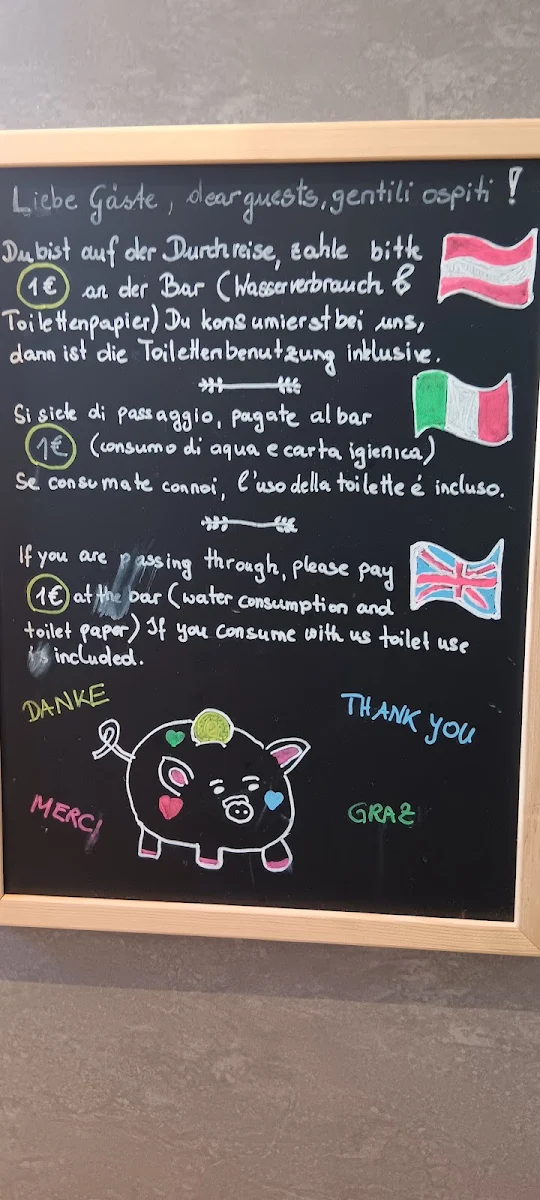 Liebe Gäste, dear guests, gentili ospiti!
Du bist auf der Durchreise, zahle bitte
1€ an der Bar (Wasserverbrauch &
Toilettenpapier) Du konsumierst bei uns,
dann ist die Toilettenbenutzung inklusive.
Si siete di passaggio, pagate al bar
1€ (consumo di aqua e carta igienica)
Se consumate con noi, l'uso della toilette é incluso.
If you are passing through, please pay
1€ at the bar (water consumption and
toilet paper) If you consume with us toilet use
is included.
DANKE
THANK YOU
MERCI
GRAZ